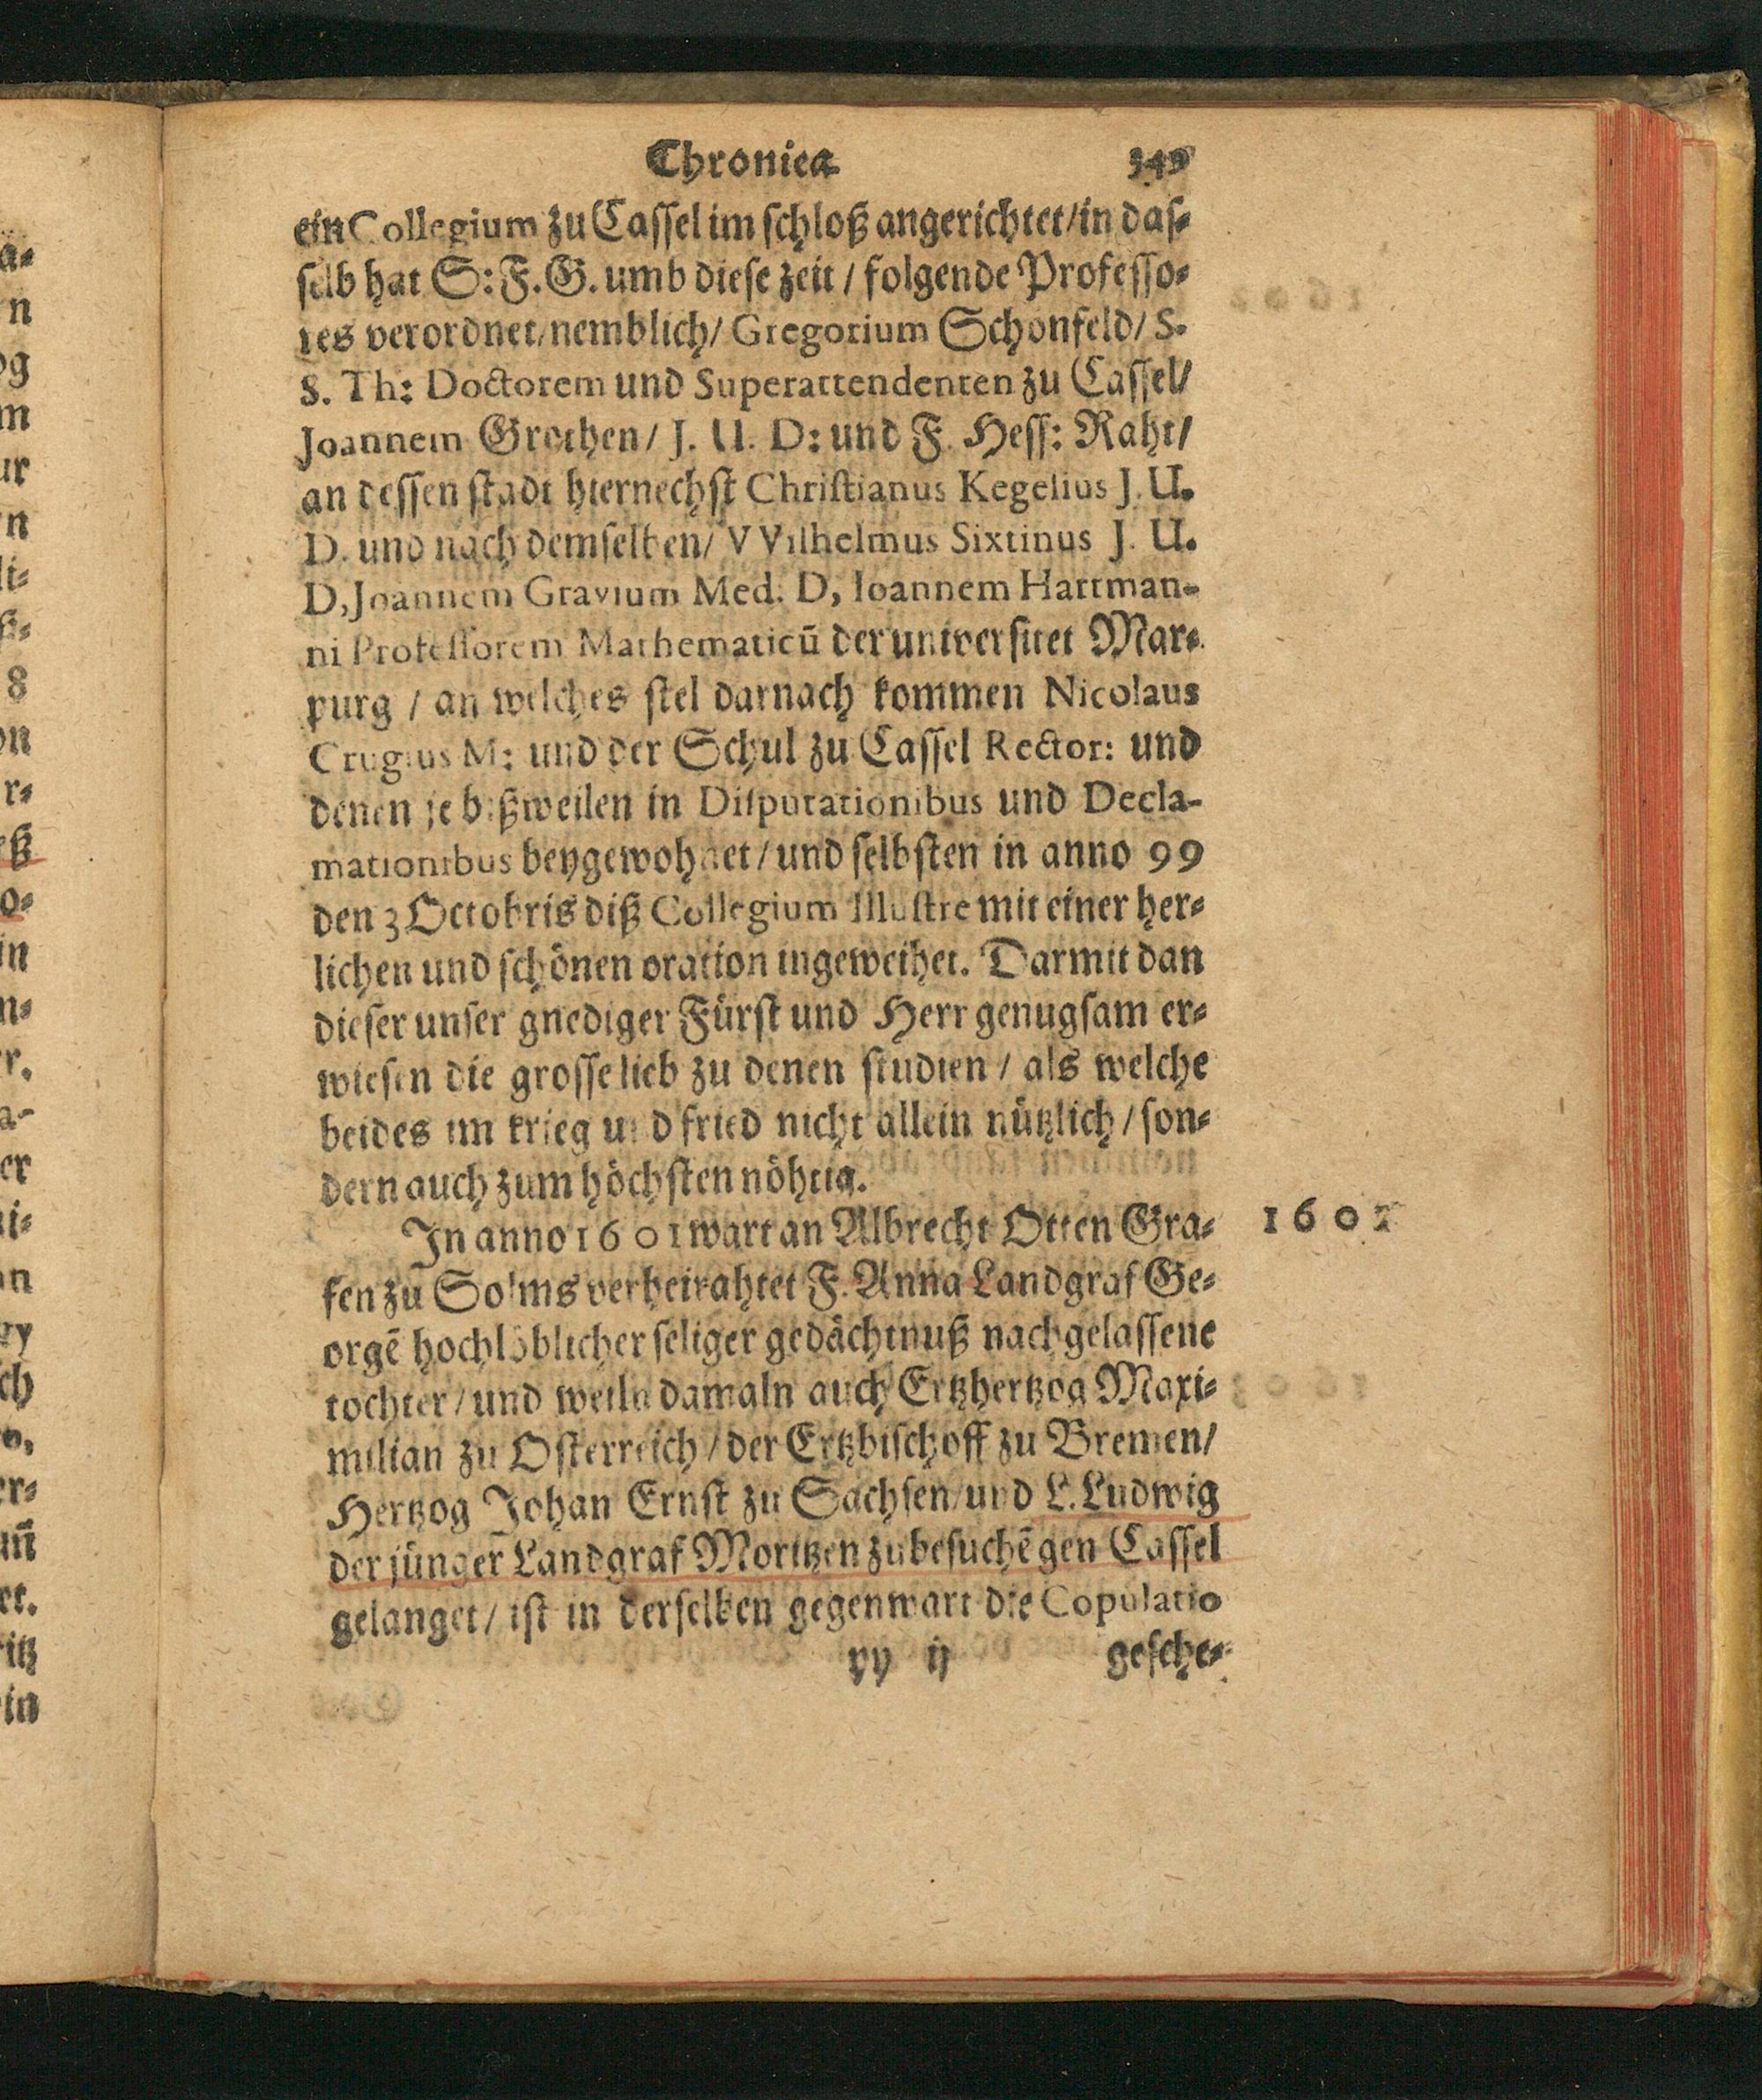 Chronica 349
ein Collegium zu Cassel im schloß angerichtet/in das-
selb hat S: F. G. umb diese zeit / folgende Professo-
res verordnet/nemblich/ Gregorium Schonfeld/ S.
S. Th: Doctorem und Superattendenten zu Cassel/
Joannem Grothen/ J. U. D: und F. Hess: Raht/
an dessen stadt hiernechst Christianus Kegelius J. U.
D. und nach demselben/ VVilhelmus Sixtinus J. U.
D, Joannem Gravium Med. D, Ioannem Hartman-
ni Professorem Mathematicū der universitet Mar-
purg / an welches stel darnach kommen Nicolaus
Crugius M: und der Schul zu Cassel Rector: und
denen je bißweilen in Disputationibus und Decla-
mationibus beygewohnet/ und selbsten in anno 99
den 3 Octobris diß Collegium Illustre mit einer her-
lichen und schönen oration ingeweihet. Darmit dan
dieser unser gnediger Fürst und Herr genugsam er-
wiesen die grosse lieb zu denen studien / als welche
beides im krieg und fried nicht allein nützlich / son-
dern auch zum höchsten nöhtig.
In anno 1601 wart an Albrecht Otten Gra- 1601
fen zu Solms verheirahtet F. Anna Landgraf Ge-
orgē hochlöblicher seliger gedächtnuß nachgelassene
tochter / und weiln damaln auch Ertzhertzog Maxi-
milian zu Osterreich / der Ertzbischoff zu Bremen/
Hertzog Johan Ernst zu Sachsen/und L. Ludwig
der jünger Landgraf Moritzen zubesuchē gen Cassel
gelanget/ ist in derselben gegenwart die Copulatio
yy ij gesche-